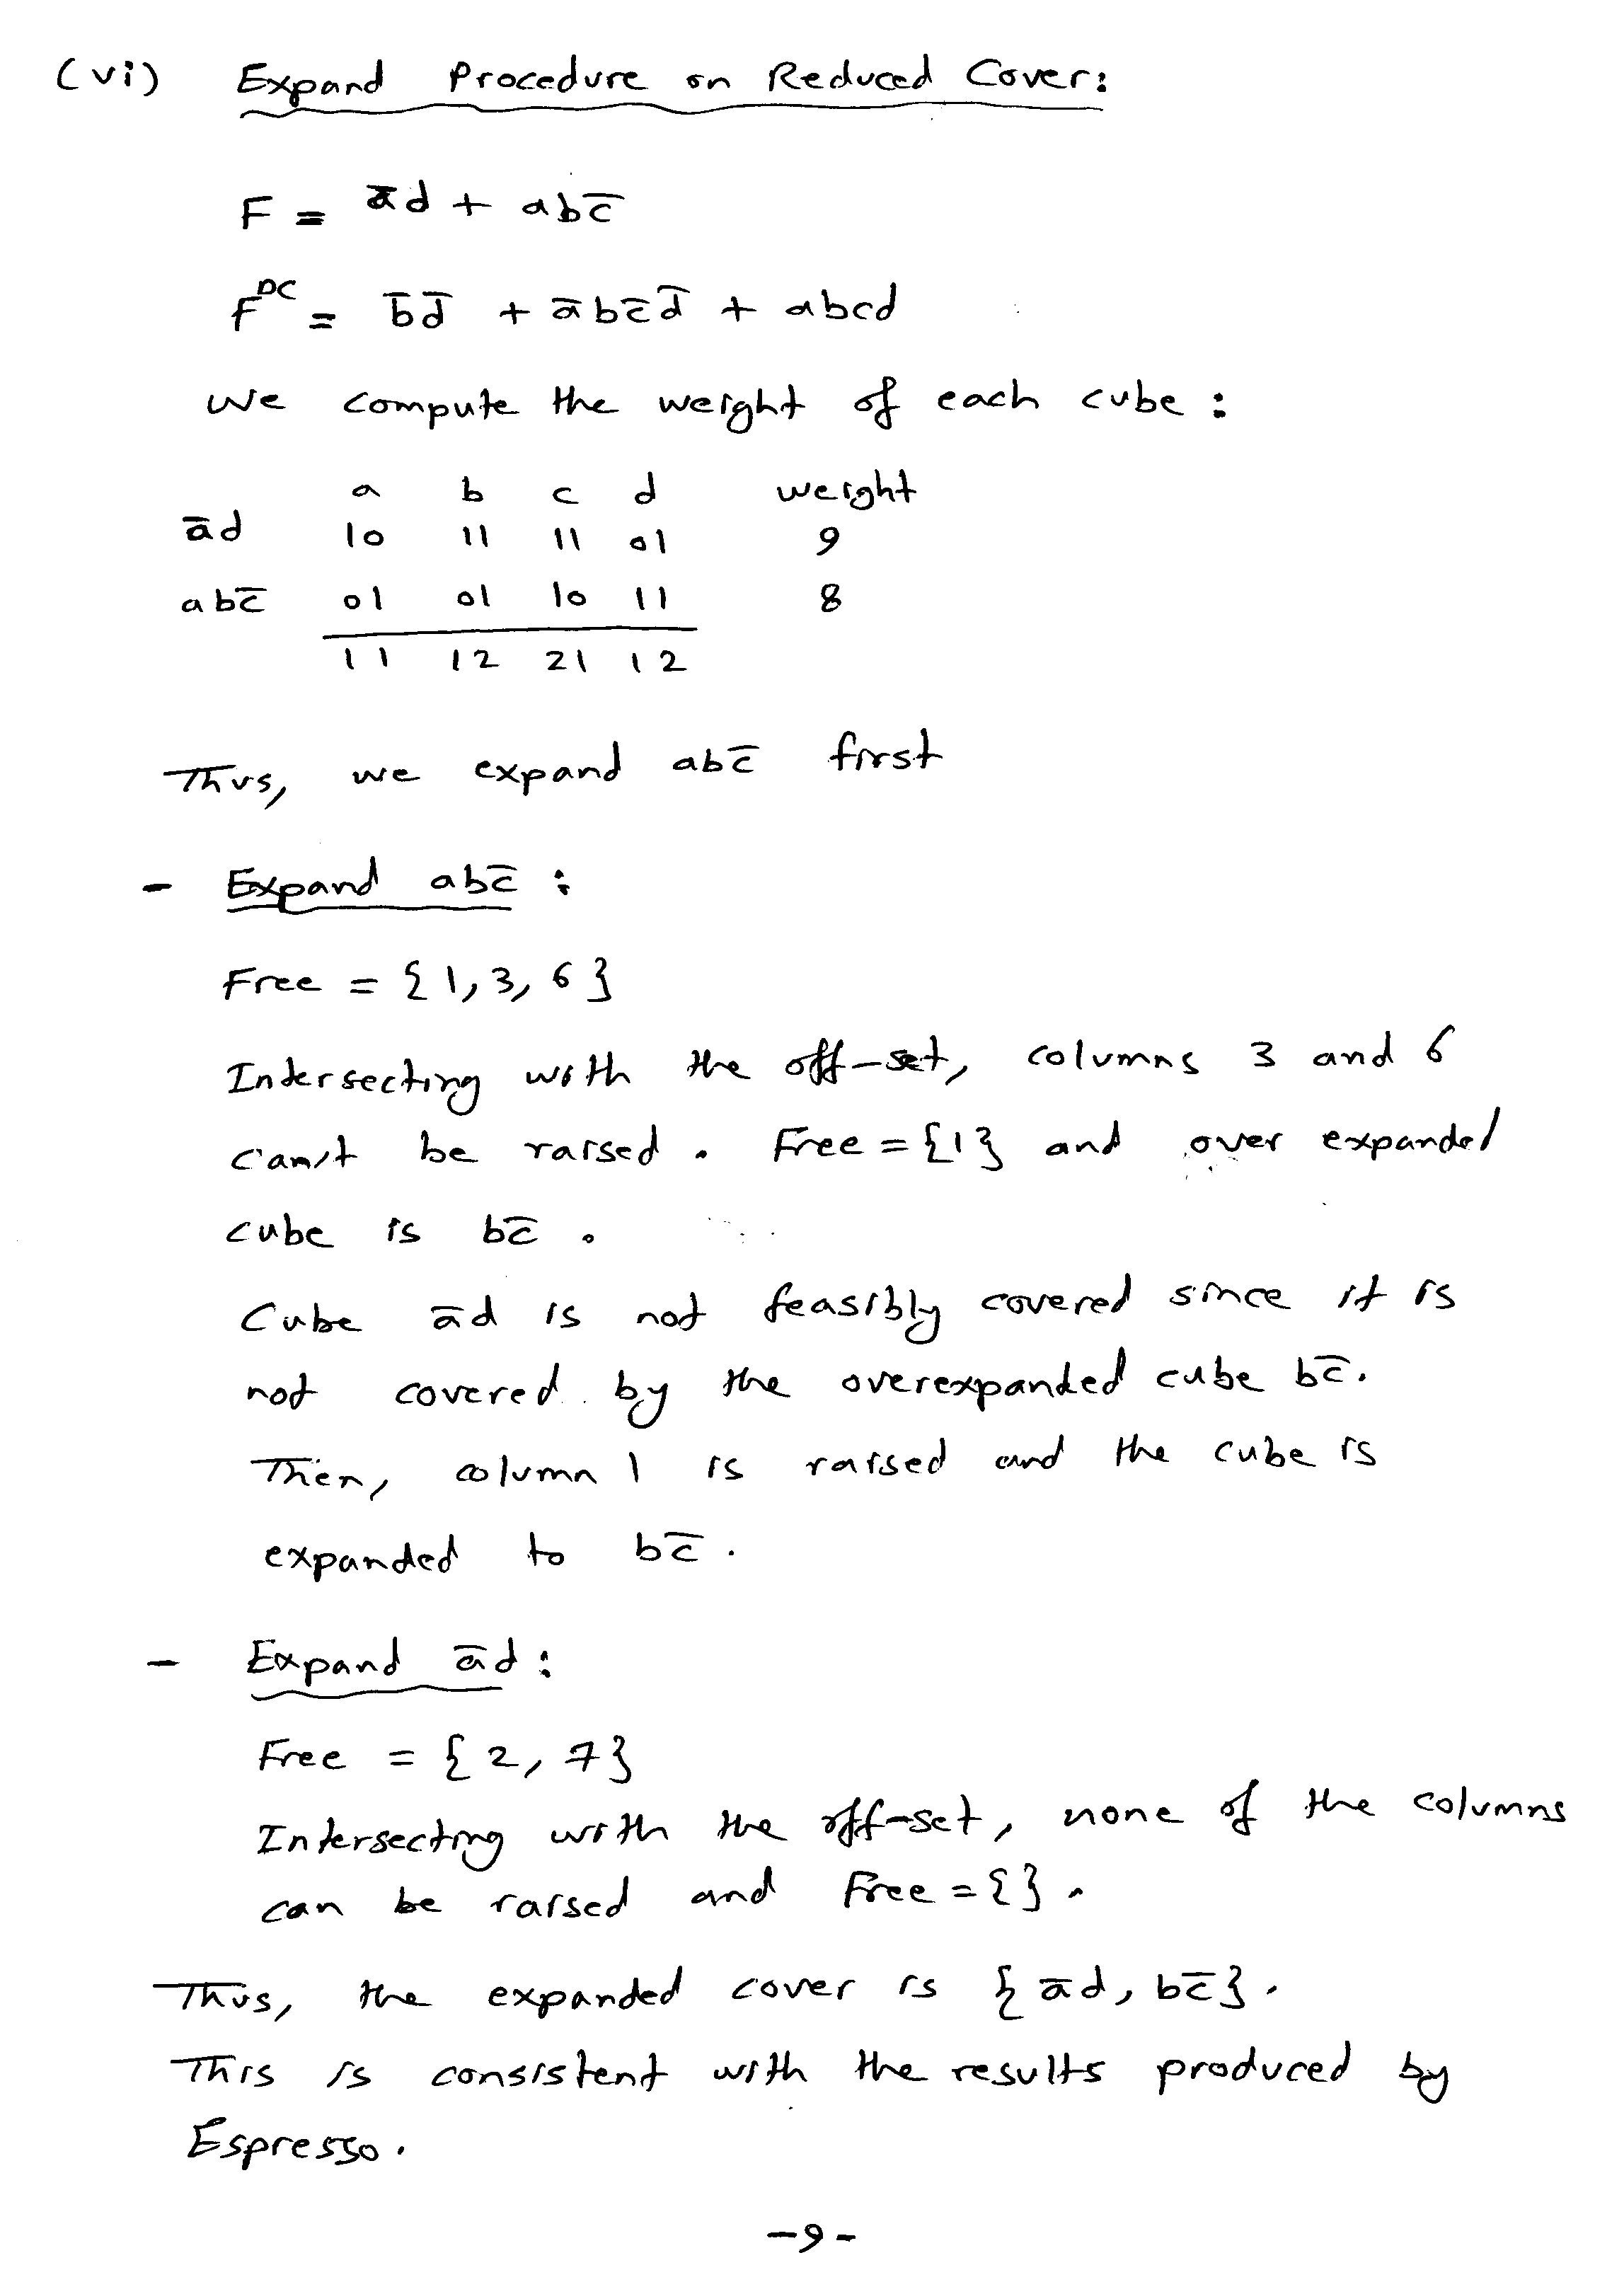 (vi) Expand Procedure on Reduced Cover:
F = a̅d + abc̅
F^DC = b̅d̅ + a̅bc̅d̅ + abcd
we compute the weight of each cube :
a b c d weight
a̅d 10 11 11 01 9
abc̅ 01 01 10 11 8
11 12 21 12
Thus, we expand abc̅ first
- Expand abc̅ :
Free = {1,3,6}
Intersecting with the off-set, columns 3 and 6
can't be raised. Free = {1} and over expanded
cube is bc̅ .
Cube a̅d is not feasibly covered since it is
not covered by the overexpanded cube bc̅.
Then, column 1 is raised and the cube is
expanded to bc̅ .
- Expand a̅d :
Free = {2, 7}
Intersecting with the off-set, none of the columns
can be raised and Free = {} .
Thus, the expanded cover is {a̅d, bc̅}.
This is consistent with the results produced by
Espresso.
-9-